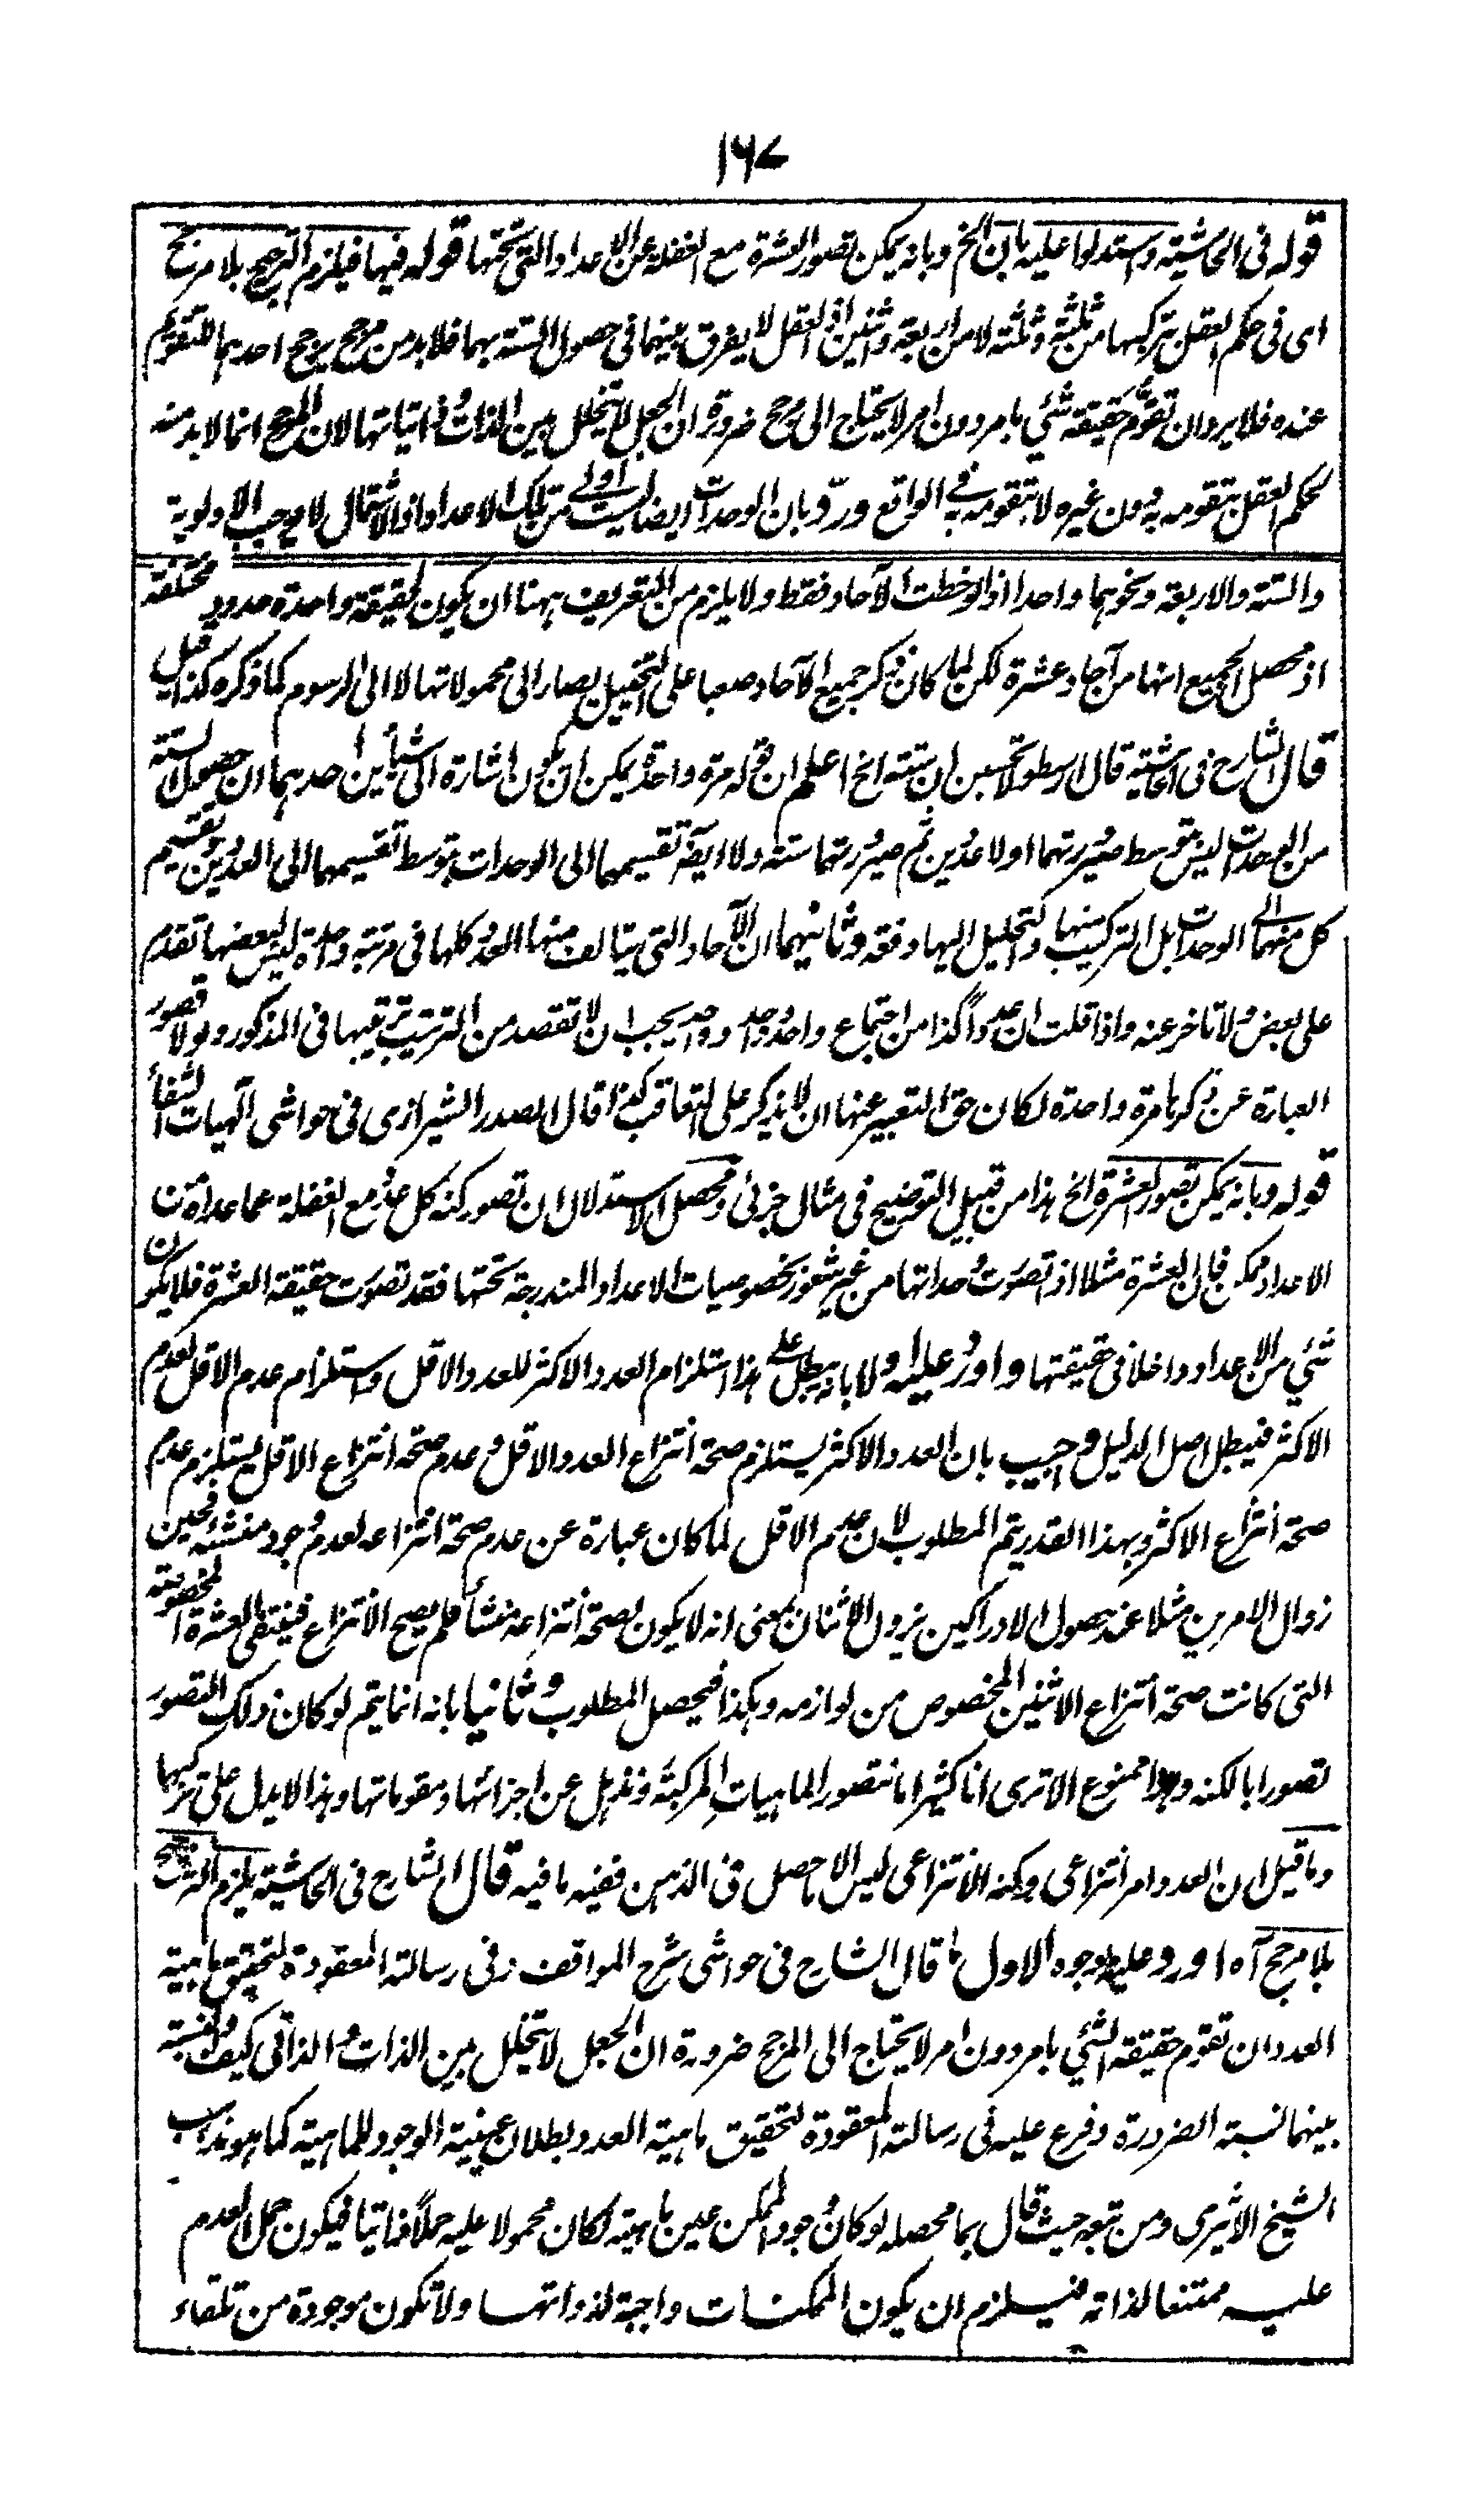 ١٦٧
قوله في الحاشية واستدلوا عليه بان الخ وبانه يمكن تصور العشرة مع الغفلة عن الاعداد التي تحتها قوله فيها فيلزم الترجيح بلا مرجح
اى فى حكم العقل بتركبها من ثلثة وثلثة لا من اربعة واثنين اذ العقل لا يفرق بينهما فى حصول الستة بهما فلابد من مرجح يرجح احدهما للتقويم
عنده فلا يرد ان تقوّم حقيقة شئ بامر دون امر لا يحتاج الى مرجح ضرورة ان الجعل لا يتخلل بين الذات وذاتياتها لان المرجح انما لابد منه
لحكم العقل بتقومه به دون غيره لا بتقومه به فى الواقع وردّ بان الوحدات ايضا ليست اولى من تلك الاعداد اذ الاشتمال لا يوجب الاولوية
والستة والاربعة ونحوهما واحدا اذ لوخطت الآحاد فقط ولا يلزم من التعريف بهنا ان يكون لحقيقة واحدة حدود مختلفة
اذ محصل الجميع انها من آحاد عشرة لكن لما كان ذكر جميع الآحاد صعبا على التخييل يصار الى محمولاتها لا الى الرسوم كما ذكره كذا قيل
قال الشارح فى الحاشية قال ارسطو لا تحسبن ان ستة الخ اعلم ان قوله مرة واحدة يمكن ان يكون اشارة الى شيئين احدهما ان حصول الستة
من الوحدات ليس بتوسط صيرورتهما اولا عددين ثم صيرورتهما ستة ولا ايضا تقسيمها الى الوحدات بتوسط تقسيمهما الى العددين بتقسيم
كل منهما الى الوحدات بل التركيب منها والتحليل اليها دفعة وثانيهما ان الآحاد التى يتالف منها العدد كلها فى مرتبة واحدة ليس لبعضها تقدم
على بعض ولا تاخر عنه واذا قلت ان عددا كذا من اجتماع واحد وواحد وواحد يجب ان لا تقصد من الترتيب ترتيبها فى المذكور ولولا قصور
العبارة عن ذكرها مرة واحدة لكان حق التعبير عنها ان لا يذكر على التعاقب كذا قال الصدر الشيرازى فى حواشى الهيات الشفاء
قوله وبانه يمكن تصور العشرة الخ هذا من قبيل التوضيح فى مثال جزئى ومحصل الاستدلال ان تصور كنه كل عدد مع الغفلة عما عداه من
الاعداد ممكن فان العشرة مثلا اذ تصورت وحداتها من غير شعور بخصوصيات الاعداد المندرجة تحتها فقد تصورت حقيقة العشرة فلا يكون
شئ من الاعداد داخلا فى حقيقتها واورد عليه اولا بانه يبطل على هذا استلزام العدد الاكثر للعدد الاقل واستلزام عدم الاقل لعدم
الاكثر فيبطل اصل الدليل واجيب بان العدد الاكثر يستلزم صحة انتزاع العدد الاقل وعدم صحة انتزاع الاقل يستلزم عدم
صحة انتزاع الاكثر وبهذا القدر يتم المطلوب لان عدم الاقل لما كان عبارة عن عدم صحة انتزاعه لعدم وجود منشئه فحين
زوال الامرين مثلا عند حصول الادراكين يزول الاثنان بمعنى انه لا يكون لصحة انتزاعه منشأ فلم يصح الانتزاع فينتفى العشرة المخصوصة
التى كانت صحة انتزاع الاثنين المخصوص من لوازمه وهكذا فيحصل المطلوب وثانيا بانه انما يتم لو كان ذلك التصور
تصورا بالكنه وهو ممنوع الا ترى انا كثيرا ما نتصور الماهيات المركبة ونذهل عن اجزائها ومقوماتها وهذا لا يدل على تركبها
وما قيل ان العدد امر انتزاعى وكنه الانتزاعى ليس الا ما حصل فى الذهن ففيه ما فيه قال الشارح فى الحاشية يلزم الترجيح
بلا مرجح آه اورد عليه بوجوه الاول ما قال الشارح فى حواشى شرح المواقف وفى رسالته المعقودة لتحقيق ماهية
العدد ان تقوم حقيقة الشئ بامر دون امر لا يحتاج الى المرجح ضرورة ان الجعل لا يتخلل بين الذات والذاتى كيف والنسبة
بينهما نسبة الضرورة وفرع عليه فى رسالته المعقودة لتحقيق ماهية العدد بطلان عينية الوجود للماهية كما هو مذهب
الشيخ الاشعرى ومن تبعه حيث قال بما محصله لو كان وجود الممكن عين ماهيته لكان محمولا عليه حملا ذاتيا فيكون حمل العدم
عليه ممتنعا لذاته فيلزم ان يكون الممكنات واجبة لذواتها ولا تكون موجودة من تلقاء